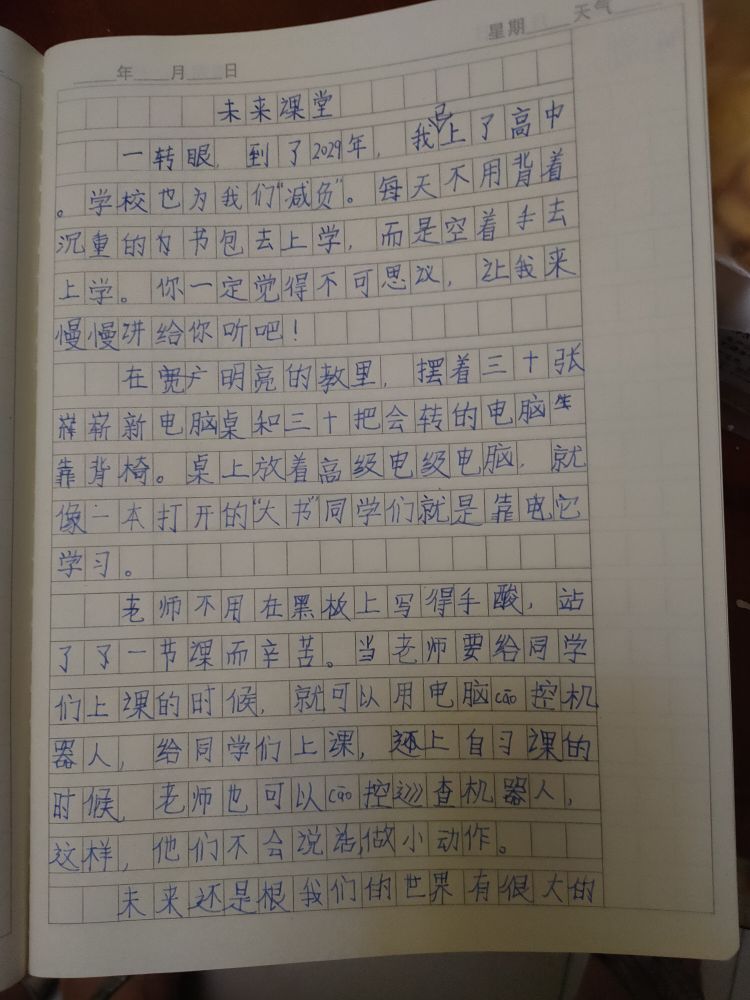 年 月 日 星期 天气
未来课堂
一转眼，到了2029年，我已上了高中
。学校也为我们“减负”。每天不用背着
沉重的书包去上学，而是空着手去
上学。你一定觉得不可思议，让我来
慢慢讲给你听吧！
在宽广明亮的教里，摆着三十张
崭新电脑桌和三十把会转的电脑
靠背椅。桌上放着高级电级电脑，就
像一本打开的“大书”同学们就是靠电它
学习。
老师不用在黑板上写得手酸，站
了了一节课而辛苦。当老师要给同学
们上课的时候，就可以用电脑cāo控机
器人，给同学们上课，还上自习课的
时候，老师也可以cāo控巡查机器人，
这样，他们不会说话，做小动作。
未来还是根我们的世界有很大的